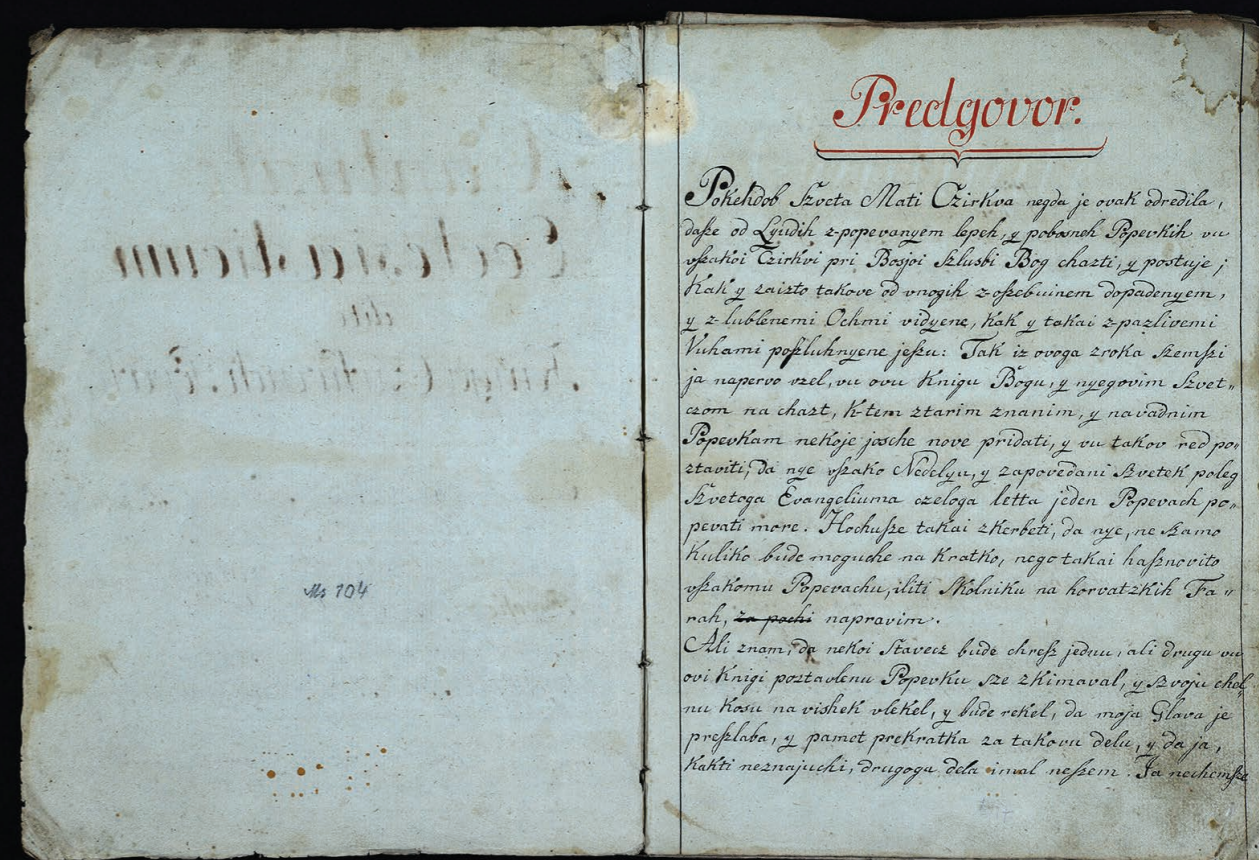 Ms 104
Predgovor.
Pokehdob Szveta Mati Czirkva negda je ovak odredila,
dasze od Lyudih z-popevanyem lepeh, y pobosneh Popevkih vu
vszakoi Czirkvi pri Bosjoi Szlusbi Bog chazti, y postuje;
Kak y zaizto takove od vnogih z-oszebuinem dopadenyem,
y z-lublenemi Ochmi vidyene, kak y takai z-pazlivemi
Vuhami poszluhnyene jeszu: Tak iz ovoga zroka szemszi
ja napervo vzel, vu ovu Knigu Bogu, y nyegovim Szvet„
czom na chazt, k-tem ztarim znanim, y navadnim
Popevkam nekoje josche nove pridati, y vu takov red po„
ztaviti, da nye vszako Nedelyu, y zapovedani Szvetek poleg
Szvetoga Evangeliuma czeloga letta jeden Popevach po„
pevati more. Hochusze takai zkerbeti, da nye, ne szamo
kuliko bude moguche na kratko, nego takai hasznovito
vszakomu Popevachu, iliti Skolniku na horvatzkih Fa„
rah, za pochi napravim.
Ali znam, da nekoi Stavecz bude chresz jednu, ali drugu vu
ovi Knigi poztavlenu Popevku sze zkimaval, y szvoju chel„
nu kosu na vishek vlekel, y bude rekel, da moja Glava je
preszlaba, y pamet prekratka za takovu delu, y da ja,
kakti neznajuchi, drugoga dela imal neszem. Ja nechemsze